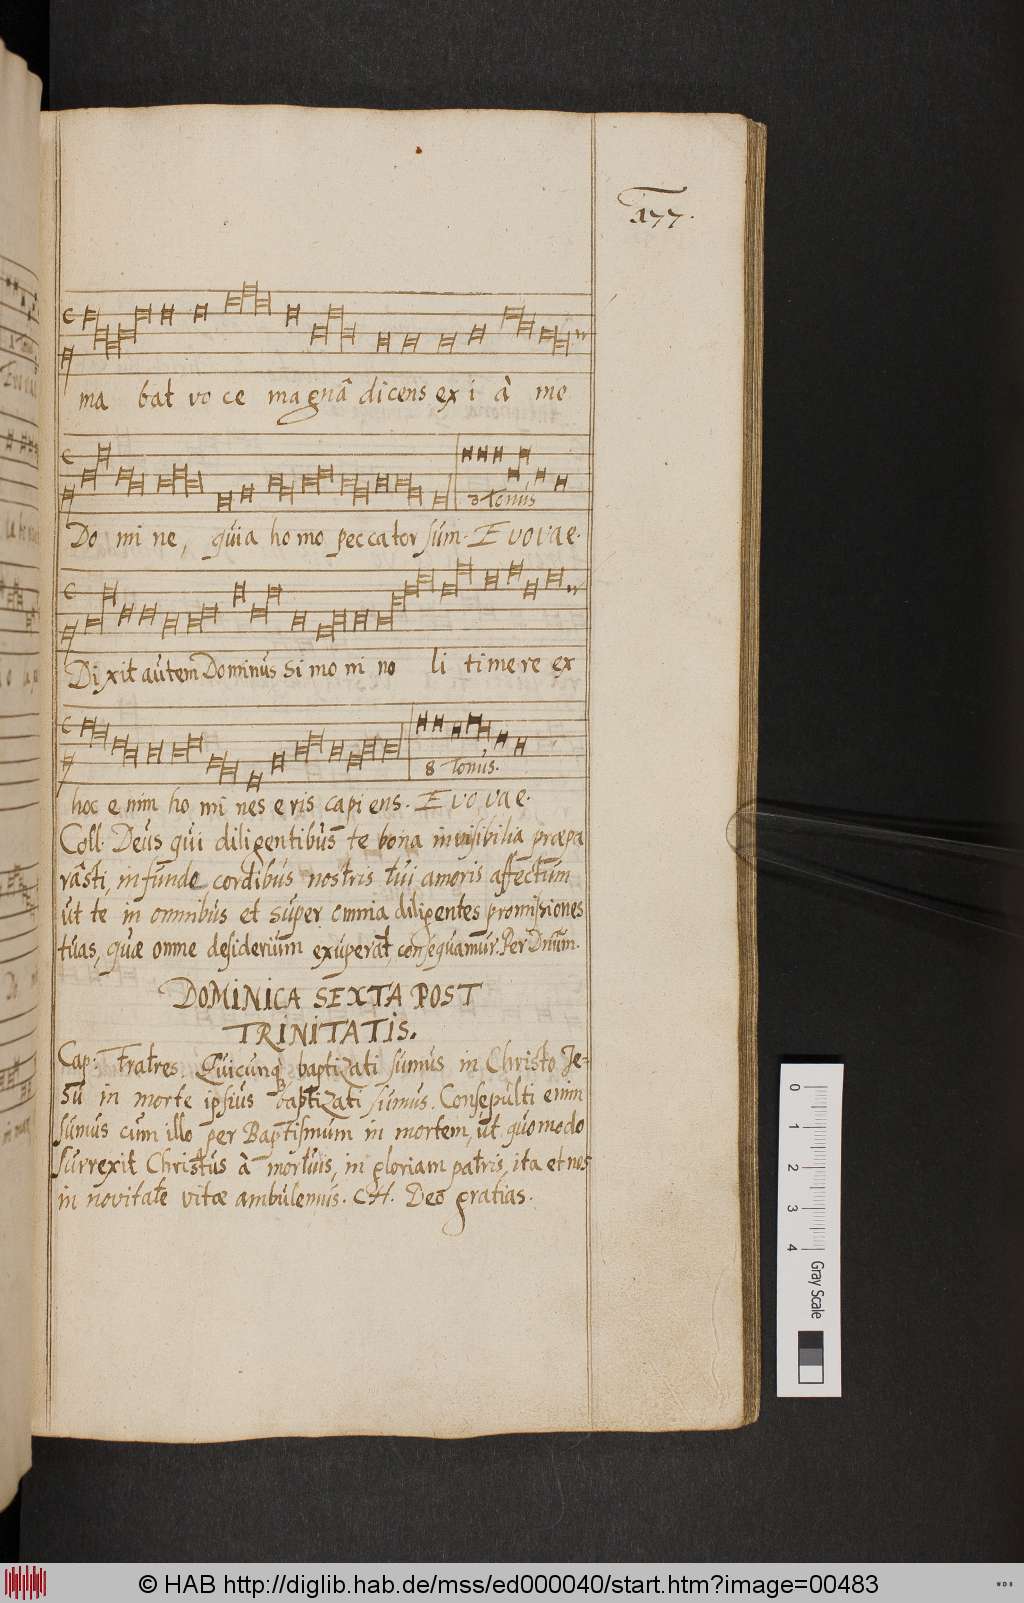 177.
ma bat vo ce magnâ dicens ex i à me
Do mi ne, quia ho mo peccator sum. E vovae.
3 Tonus
Dixit autem Dominus Si mo ni no li timere ex
8 Tonus.
hoc e nim ho mi nes e ris capi ens. E vo vae.
Coll. Deus qui diligentibus te bona invisibilia præpa
râsti, infunde cordibus nostris tui amoris affectum
ut te in omnibus et super omnia diligentes promissiones
tuas, quæ omne desiderium exuperat, consequamur. Per Dnum.
DOMINICA SEXTA POST
TRINITATIS.
Cap: Fratres. Quicunq baptizati sumus in Christo Je-
su in morte ipsius baptizati sumus. Consepulti enim
sumus cum illo per Baptismum in mortem, ut quomodo
surrexit Christus à mortuis, in gloriam patris, ita et nos
in novitate vitæ ambulemus. CH. Deo gratias.
0 1 2 3 4 Gray Scale
© HAB http://diglib.hab.de/mss/ed000040/start.htm?image=00483